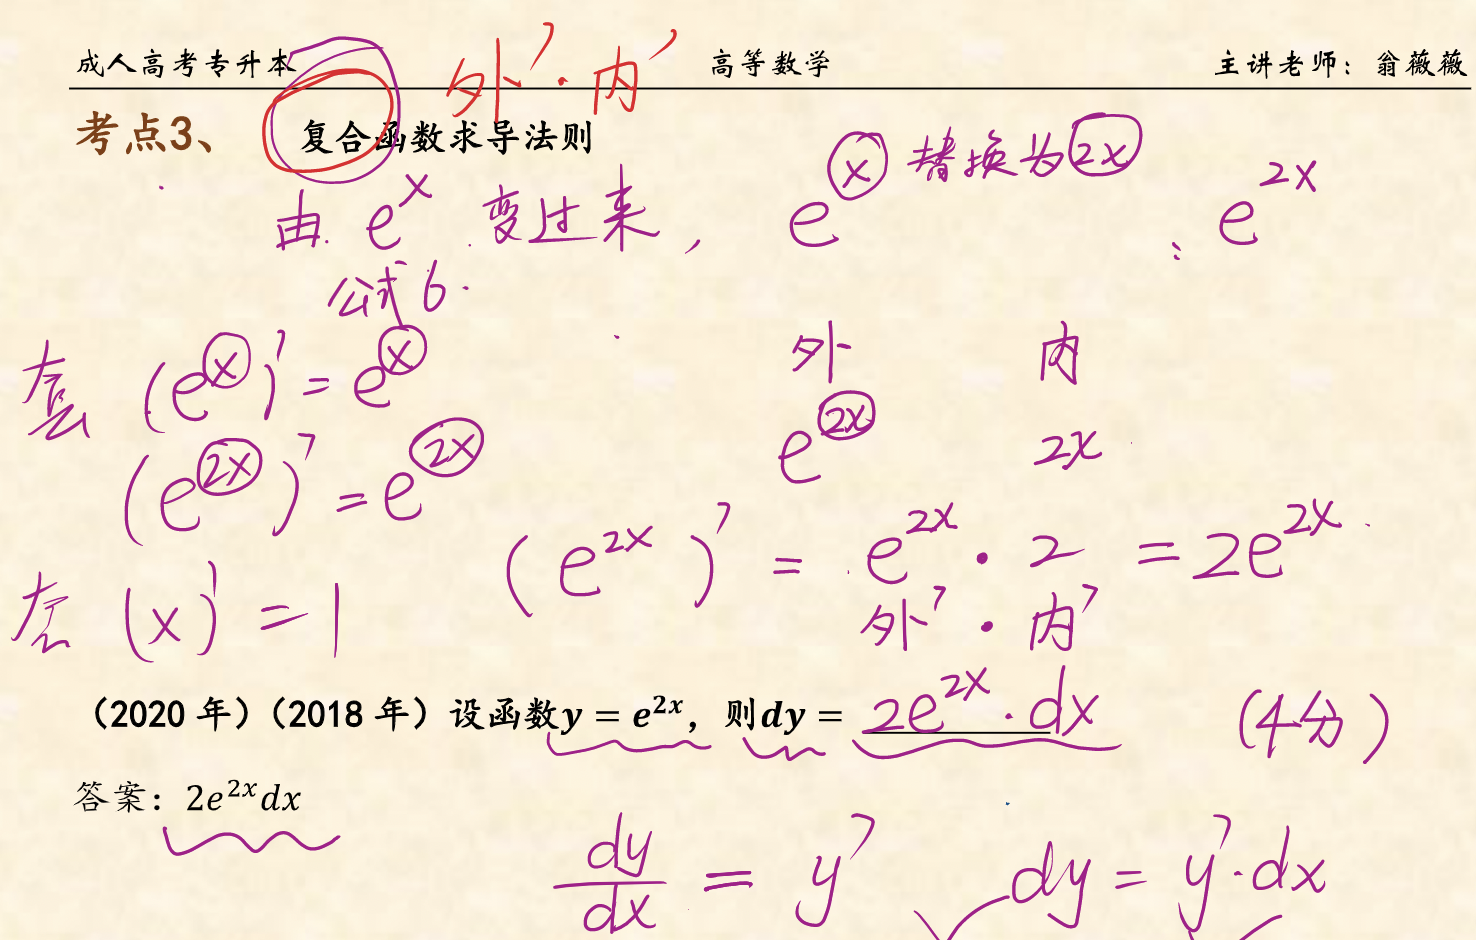 成人高考专升本 高等数学 主讲老师：翁薇薇
外′·内′
考点3、 复合函数求导法则
由 e^x 变过来, e^x 替换为 2x ; e^{2x}
公式6.
外 内
套 (e^x)′ = e^x
e^{2x} 2x
(e^{2x})′ = e^{2x}
(e^{2x})′ = e^{2x} · 2 = 2e^{2x}
外′ · 内′
(x)′ = 1
（2020 年）（2018 年）设函数y = e^{2x}，则dy = 2e^{2x}·dx (4分)
答案：2e^{2x}dx
dy/dx = y′ dy = y′·dx